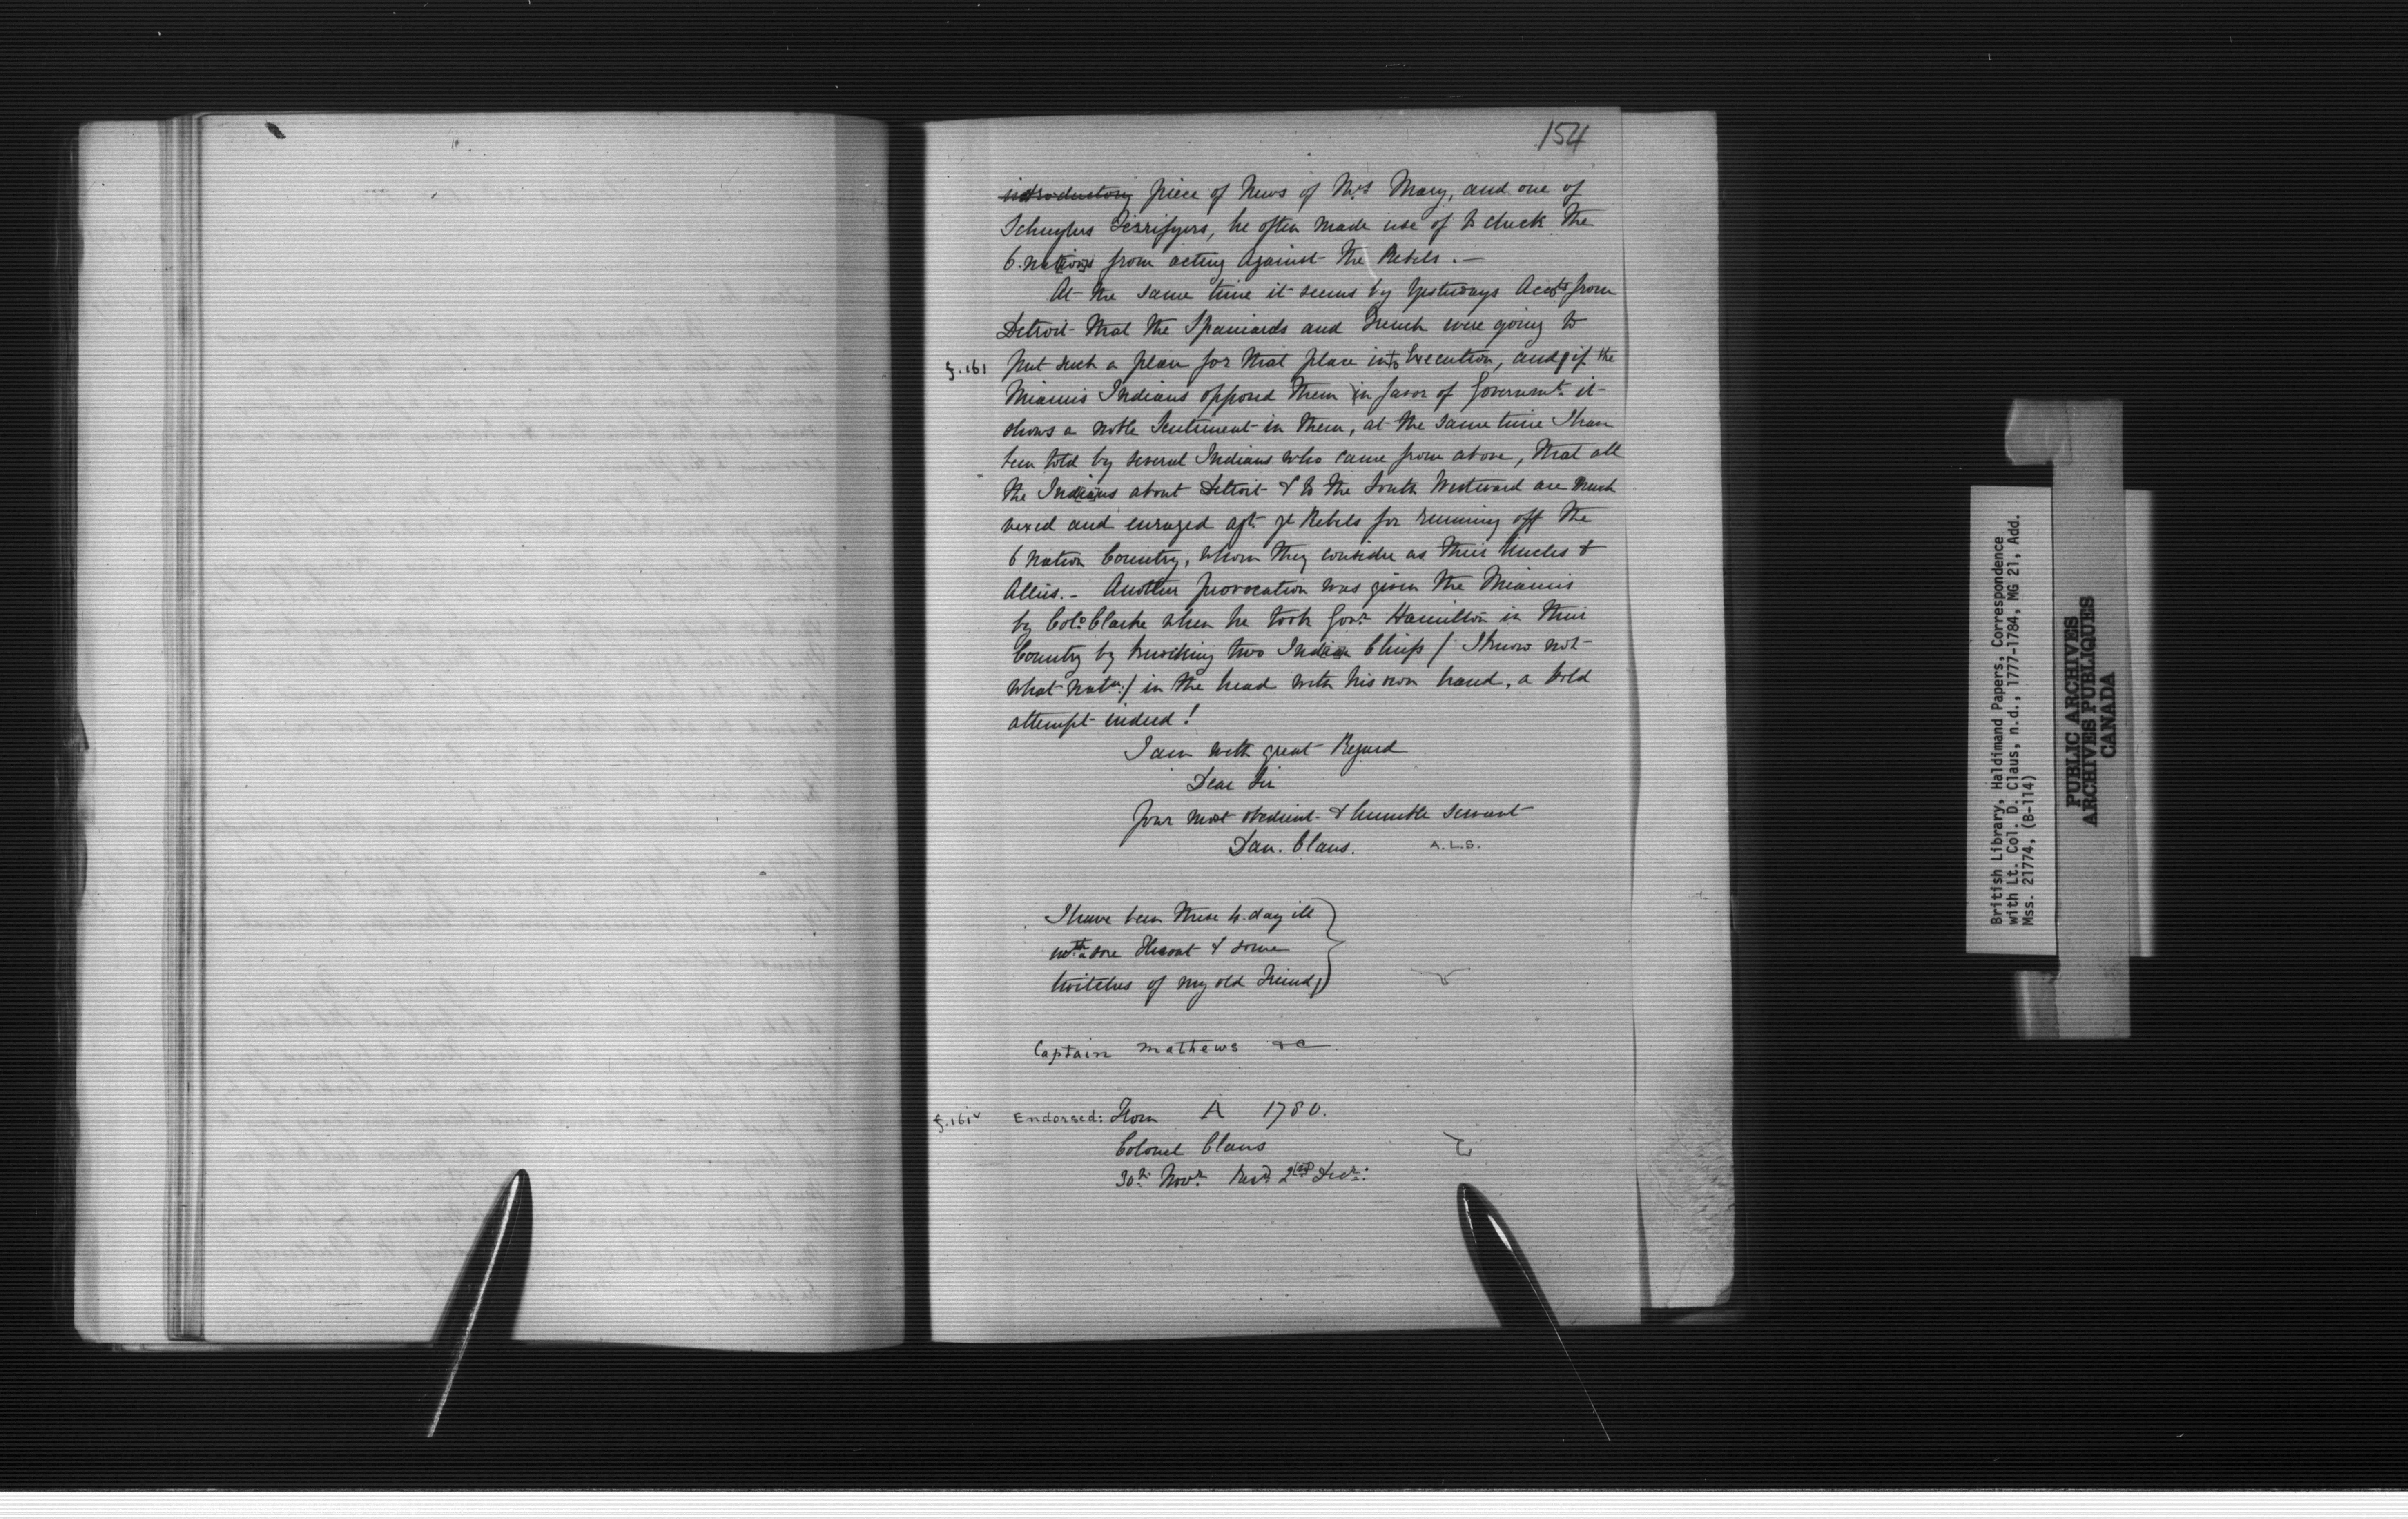 154
introductory piece of News of Mrs Mary, and one of
Schuylers Terrifyers, he often made use of to check the
6. nations from acting against the Rebels. —
At the same time it seems by Yesterdays Accts from
Detroit that the Spaniards and French were going to
f.161 put such a plan for that place into Execution, and if the
Miamis Indians opposed them in favor of Governmt. it
shows a noble Sentiment in them, at the same time I have
been told by several Indians who came from above, that all
the Indians about Detroit & to the South Westward are much
vexed and enraged agt. ye Rebels for running off the
6 Nation Country, whom they consider as their Uncles &
Allies. - Another provocation was given the Miamis
by Colo. Clarke when he took Govr. Hamilton in their
Country by knocking two Indian Chiefs / I know not
what Natn:/ in the head with his own hand, a bold
attempt indeed!
I am with great Regard
Dear Sir
Your most obedient & humble Servant
Dan. Claus. A.L.S.
I have been these 4. day ill
wth. a sore throat & some
twitches of my old Friend,
Captain Mathews &c
f.161v Endorsed: From A 1780.
Colonel Claus
30th. Novr. Recd. 2nd Decr:
British Library, Haldimand Papers, Correspondence
with Lt. Col. D. Claus, n.d., 1777-1784, MG 21, Add.
Mss. 21774, (B-114)
PUBLIC ARCHIVES
ARCHIVES PUBLIQUES
CANADA